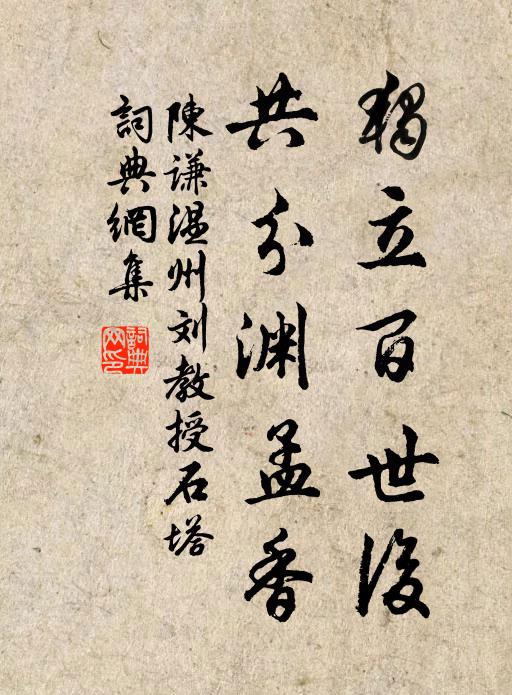 獨立百世後
共分淵孟香
陳謙溫州刘教授石塔
詞典網集
詞典网印